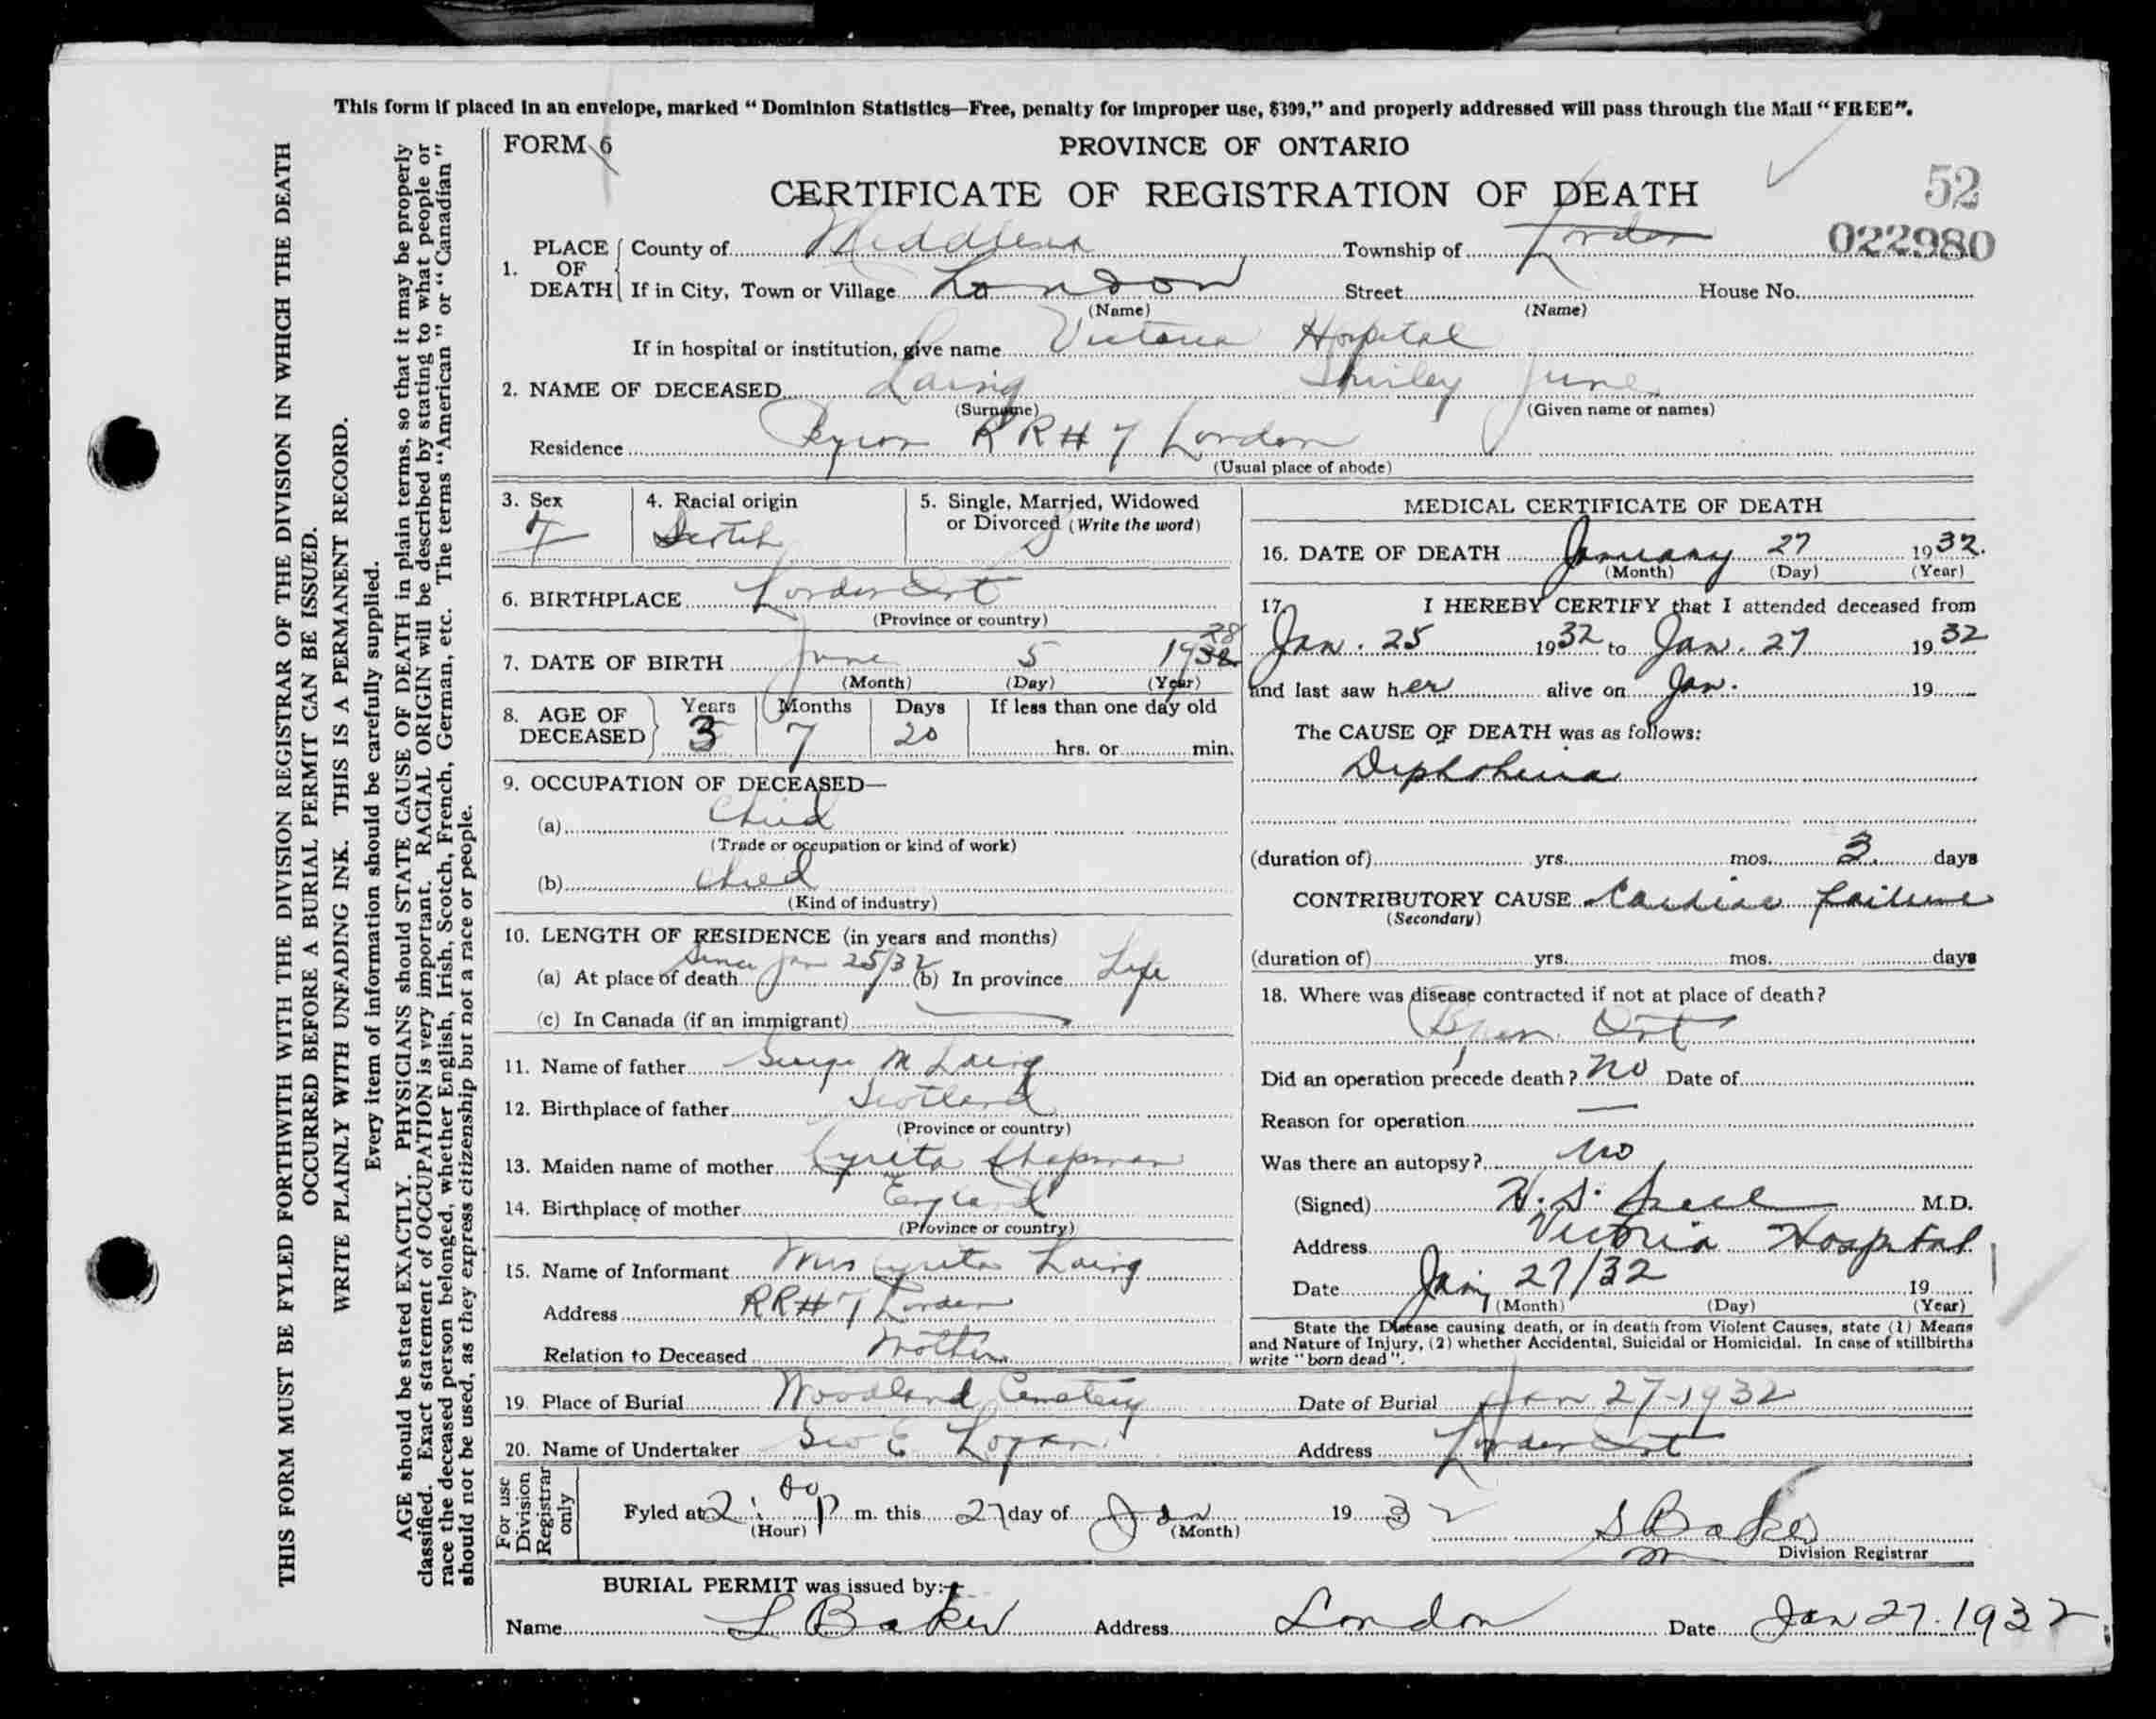 This form if placed in an envelope, marked “Dominion Statistics—Free, penalty for improper use, $300,” and properly addressed will pass through the Mail “FREE”.
THIS FORM MUST BE FYLED FORTHWITH WITH THE DIVISION REGISTRAR OF THE DIVISION IN WHICH THE DEATH
OCCURRED BEFORE A BURIAL PERMIT CAN BE ISSUED.
WRITE PLAINLY WITH UNFADING INK. THIS IS A PERMANENT RECORD.
Every item of information should be carefully supplied.
AGE should be stated EXACTLY. PHYSICIANS should STATE CAUSE OF DEATH in plain terms, so that it may be properly
classified. Exact statement of OCCUPATION is very important. RACIAL ORIGIN will be described by stating to what people or
race the deceased person belonged, whether English, Irish, Scotch, French, German, etc. The terms “American” or “Canadian”
should not be used, as they express citizenship but not a race or people.
FORM 6
PROVINCE OF ONTARIO
CERTIFICATE OF REGISTRATION OF DEATH
52
022980
1. PLACE OF DEATH County of Middlesex Township of London
If in City, Town or Village London Street House No.
(Name) (Name)
If in hospital or institution, give name Victoria Hospital
2. NAME OF DECEASED Laing Shirley June
(Surname) (Given name or names)
Residence Byron RR# 7 London
(Usual place of abode)
3. Sex F
4. Racial origin Scotch
5. Single, Married, Widowed or Divorced (Write the word) S
6. BIRTHPLACE London Ont
(Province or country)
7. DATE OF BIRTH June 5 1932 28
(Month) (Day) (Year)
8. AGE OF DECEASED Years 3 Months 7 Days 20 If less than one day old
hrs. or min.
9. OCCUPATION OF DECEASED—
(a) Child
(Trade or occupation or kind of work)
(b) Child
(Kind of industry)
10. LENGTH OF RESIDENCE (in years and months)
(a) At place of death Since Jan 25/32 (b) In province Life
(c) In Canada (if an immigrant)
11. Name of father George M Laing
12. Birthplace of father Scotland
(Province or country)
13. Maiden name of mother Cyrita Chapman
14. Birthplace of mother England
(Province or country)
15. Name of Informant Mrs Cyrita Laing
Address RR# 7 London
Relation to Deceased Mother
MEDICAL CERTIFICATE OF DEATH
16. DATE OF DEATH January 27 1932.
(Month) (Day) (Year)
17. I HEREBY CERTIFY that I attended deceased from
Jan. 25 1932 to Jan. 27 1932
and last saw her alive on Jan. 19
The CAUSE OF DEATH was as follows:
Diphtheria
(duration of) yrs. mos. 3. days
CONTRIBUTORY CAUSE Cardiac failure
(Secondary)
(duration of) yrs. mos. days
18. Where was disease contracted if not at place of death?
Byron. Ont
Did an operation precede death? No Date of
Reason for operation —
Was there an autopsy? No
(Signed) H. S. M.D.
Address Victoria Hospital
Date Jan 27/32 19
(Month) (Day) (Year)
State the Disease causing death, or in death from Violent Causes, state (1) Means
and Nature of Injury, (2) whether Accidental, Suicidal or Homicidal. In case of stillbirths
write “born dead”.
19. Place of Burial Woodland Cemetery Date of Burial Jan 27-1932
20. Name of Undertaker Geo E Logan Address London Ont
For use Division Registrar only
Fyled at 2:00 p m. this 27 day of Jan 1932 S Baker
(Hour) (Month) Division Registrar
BURIAL PERMIT was issued by:—
Name S Baker Address London Date Jan 27. 1932